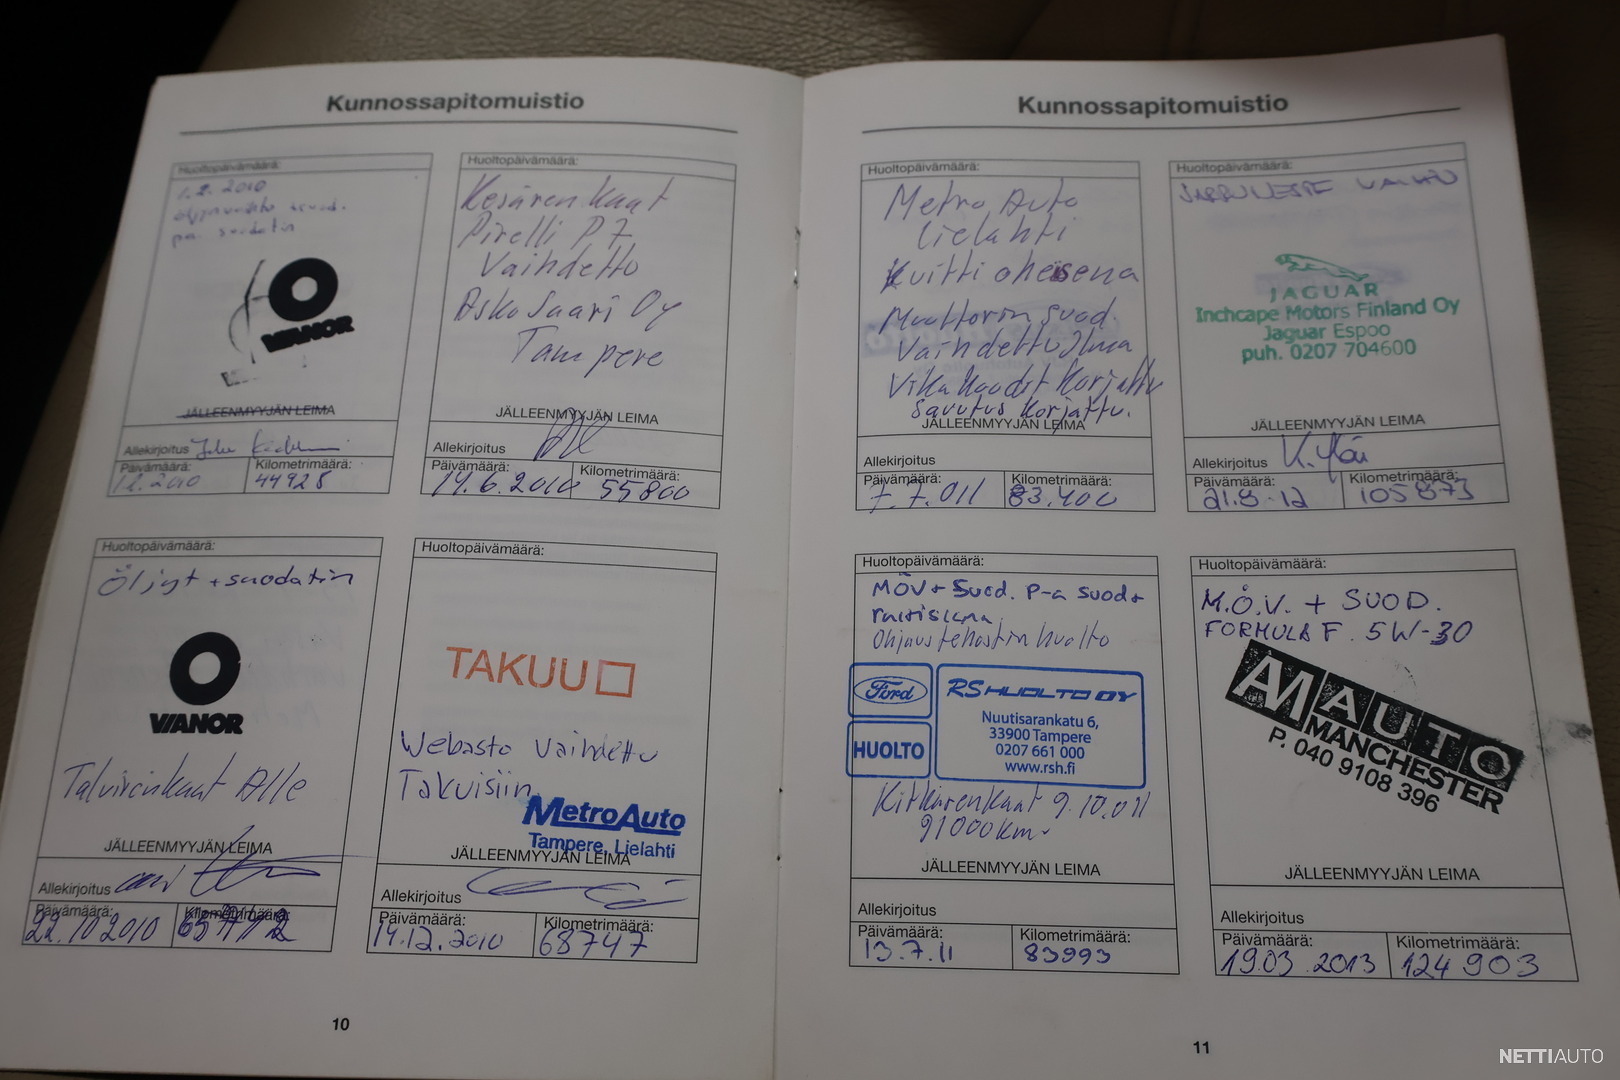 Kunnossapitomuistio
Huoltopäivämäärä:
1.2.2010
VIANOR
JÄLLEENMYYJÄN LEIMA
Allekirjoitus
Päivämäärä:
Kilometrimäärä:
44928
Huoltopäivämäärä:
Kesärenkaat
Pirelli P7
Vaihdettu
Asko Saari Oy
Tampere
JÄLLEENMYYJÄN LEIMA
Allekirjoitus
Päivämäärä:
Kilometrimäärä:
14.6.2010
55800
Huoltopäivämäärä:
Öljyt + suodatin
VIANOR
Talvirenkaat Alle
JÄLLEENMYYJÄN LEIMA
Allekirjoitus
Päivämäärä:
Kilometrimäärä:
22.10 2010
Huoltopäivämäärä:
TAKUU
Webasto vaihdettu
Takuisiin
MetroAuto
Tampere, Lielahti
JÄLLEENMYYJÄN LEIMA
Allekirjoitus
Päivämäärä:
Kilometrimäärä:
14.12.2010
68747
10
Kunnossapitomuistio
Huoltopäivämäärä:
Metro Auto
Lielahti
Kuitti oheisena
Moottorin suod.
Vaihdettu Ilma
Vikakoodit Korjattu
Savutus Korjattu.
JÄLLEENMYYJÄN LEIMA
Allekirjoitus
Päivämäärä:
Kilometrimäärä:
7.7.011
83.400
Huoltopäivämäärä:
JARRUNESTE VAIHTO
JAGUAR
Inchcape Motors Finland Oy
Jaguar Espoo
puh. 0207 704600
JÄLLEENMYYJÄN LEIMA
Allekirjoitus
Päivämäärä:
Kilometrimäärä:
21.8.12
105873
Huoltopäivämäärä:
MÖV+ Suod. P-a suod+
raitisilma
Ohjaustehostin huolto
Ford
HUOLTO
RS HUOLTO OY
Nuutisarankatu 6,
33900 Tampere
0207 661 000
www.rsh.fi
Kitkarenkaat 9.10.011
91000km
JÄLLEENMYYJÄN LEIMA
Allekirjoitus
Päivämäärä:
Kilometrimäärä:
13.7.11
83993
Huoltopäivämäärä:
M.Ö.V. + SUOD.
FORMULA F. 5W-30
AM AUTO
MANCHESTER
P. 040 9108 396
JÄLLEENMYYJÄN LEIMA
Allekirjoitus
Päivämäärä:
Kilometrimäärä:
19.03.2013
124903
11
NETTIAUTO